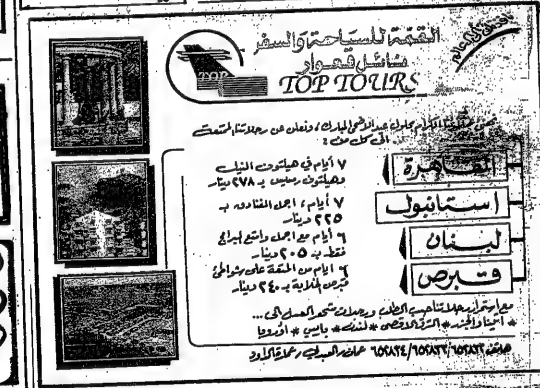 القمّة للسياحة والسفر
فعوار
TOP TOURS
TOP
بحلول عيد الأضحى المبارك، ونعلن عن رحلاتنا الممتعة
الى كل من :
القاهرة
٧ أيام في هيلتون النيل
وهيلتون رمسيس بـ ٢٧٨ دينار
استانبول
٧ أيام، اجمل الفنادق بـ
٢٢٥ دينار
لبنان
٦ أيام مع اجمل وامتع البرامج
فقط بـ ٢٠٥ دينار
قبرص
٦ ايام من المتعة على شواطئ
قبرص الخلابة بـ ٢٤٠ دينار
مع استمرار رحلاتنا حسب الطلب ورحلات شهر العسل الى ...
* الشرق الاقصى * لندن * باريس * اوروبا
هاتف ٦٥٢٨٢٢/٦٥٢٨٢٣/٦٥٢٨٢٤ عمان - العبدلي -